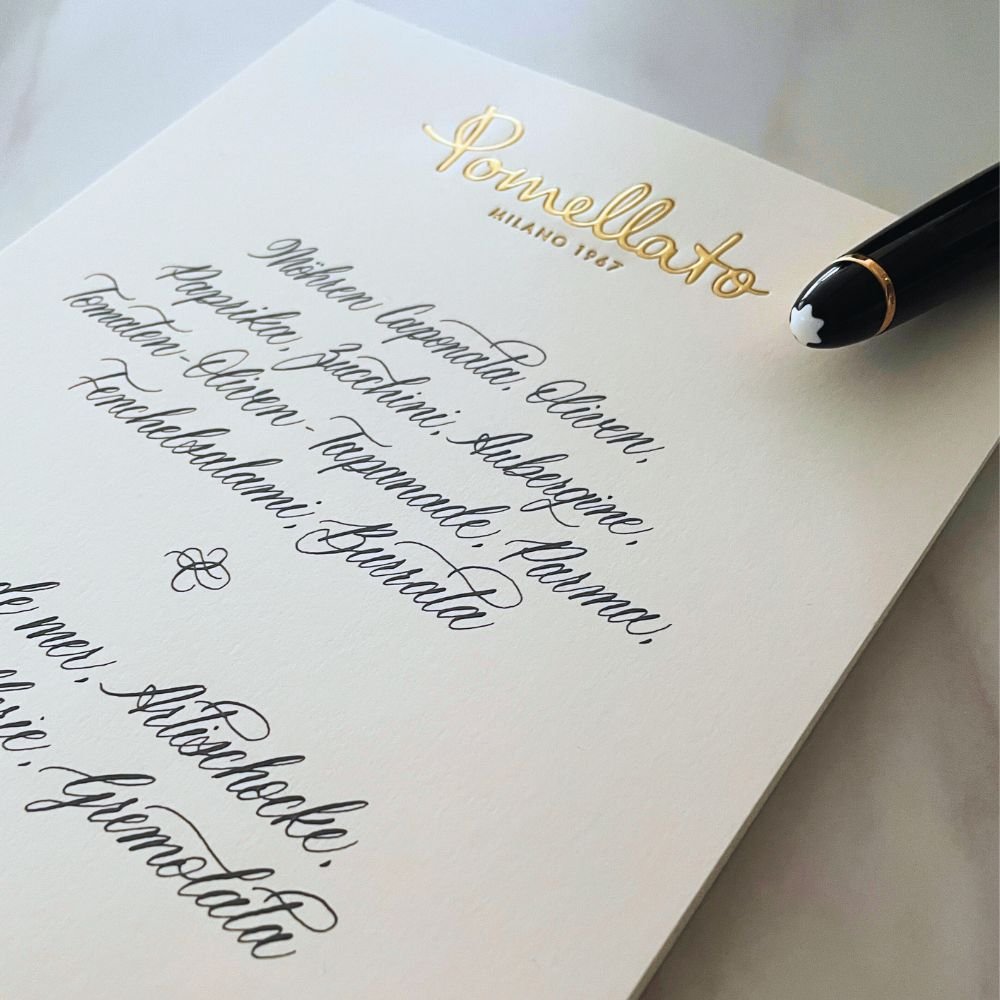 Pomellato
MILANO 1967
Möhren Caponata, Oliven,
Paprika, Zucchini, Aubergine,
Tomaten-Oliven-Tapanade, Parma,
Fenchelsalami, Burrata
de mer, Artischocke,
Gremolata